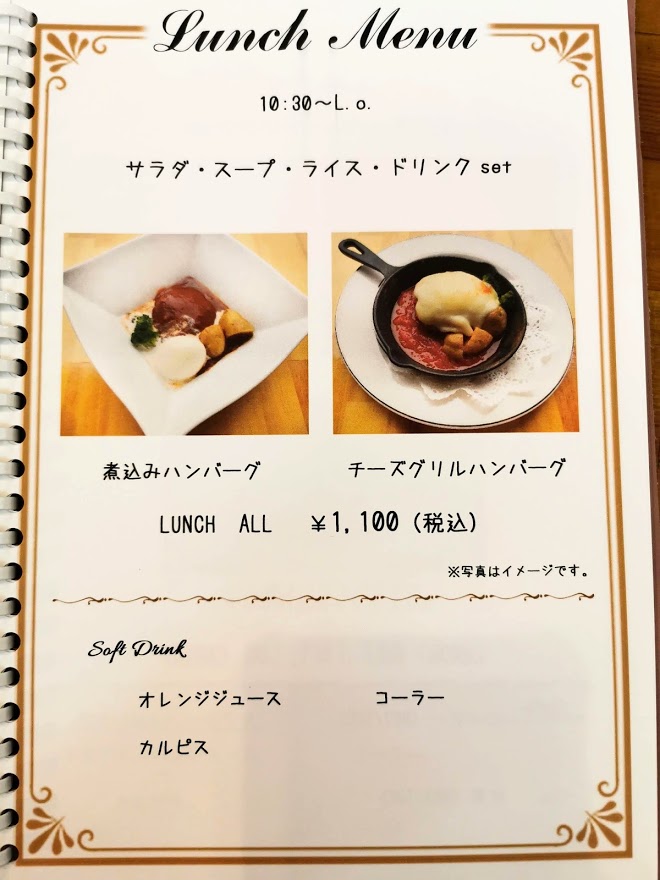 Lunch Menu
10:30～L.o.
サラダ・スープ・ライス・ドリンク set
煮込みハンバーグ
チーズグリルハンバーグ
LUNCH ALL ￥1,100 (税込)
※写真はイメージです。
Soft Drink
オレンジジュース コーラー
カルピス